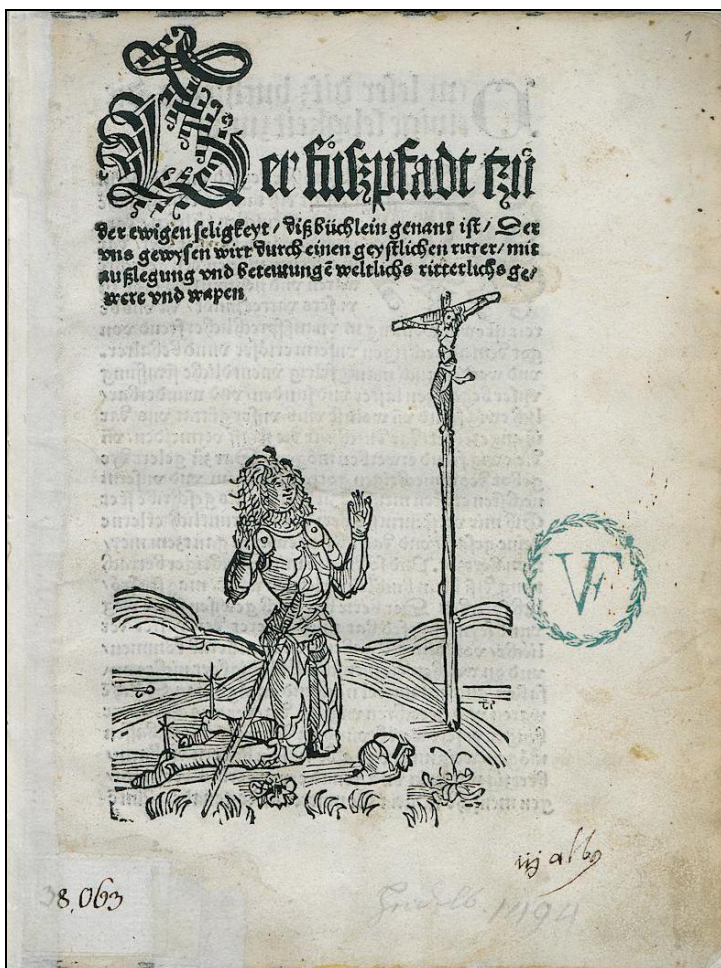 1
Der fůszpfadt tzů
der ewigen seligkeyt / diß büchlein genant ist / Der
vns gewysen wirt durch einen geystlichen ritter / mit
außlegung vnd beteutungē weltlichs ritterlichs ge/
were vnd wapen
VF
iij alb9
38,063
Heidelb. 1494